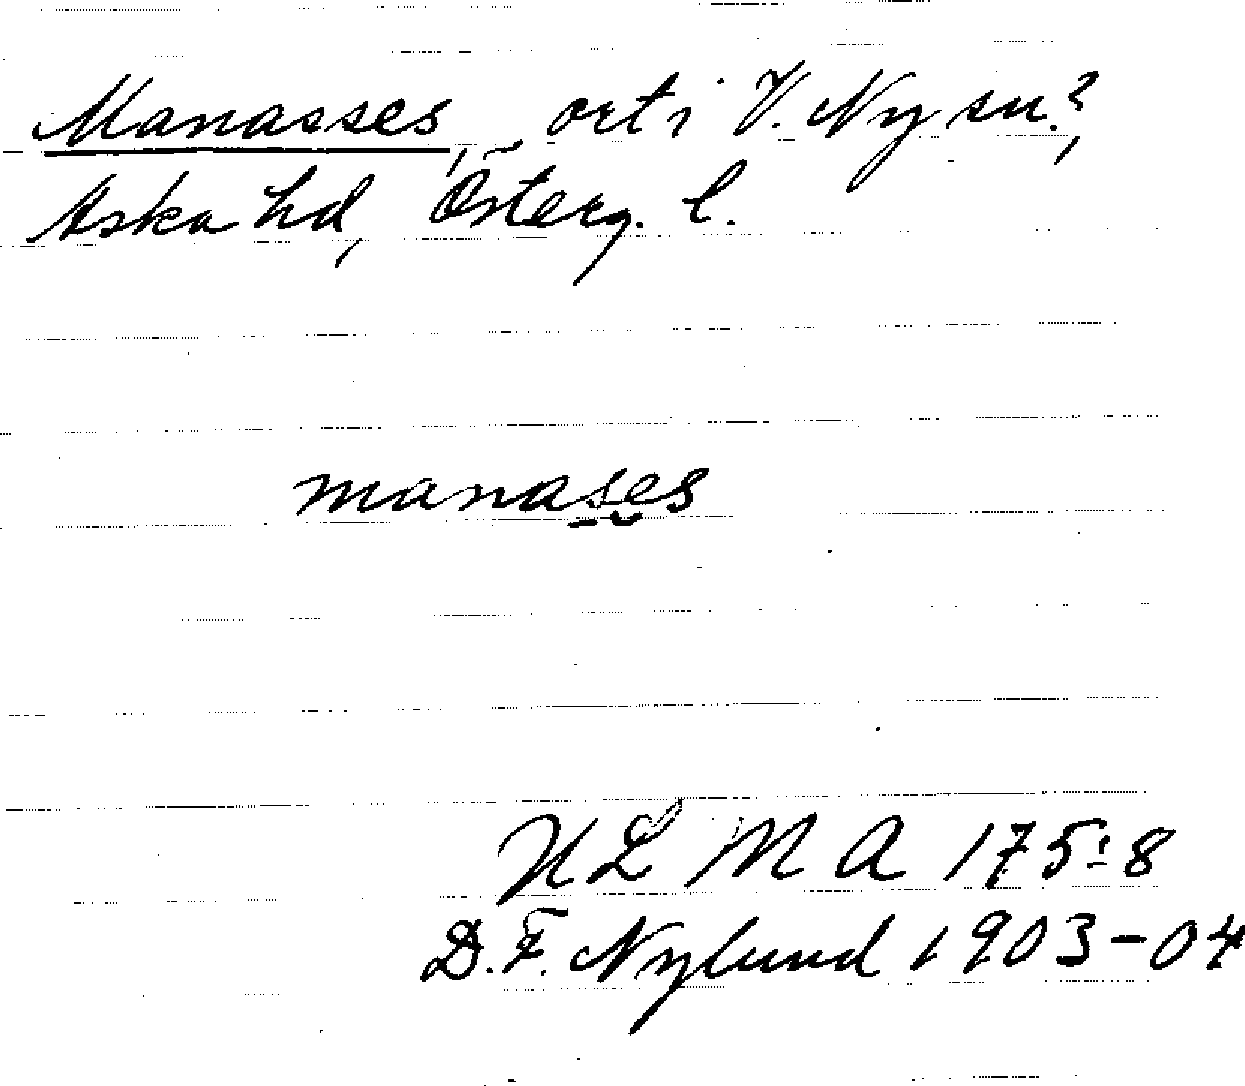 Manasses, ort i V. Ny sn.?,
Aska hd, Österg. l.
manases
ULMA 175:8
D.F. Nylund 1903-04